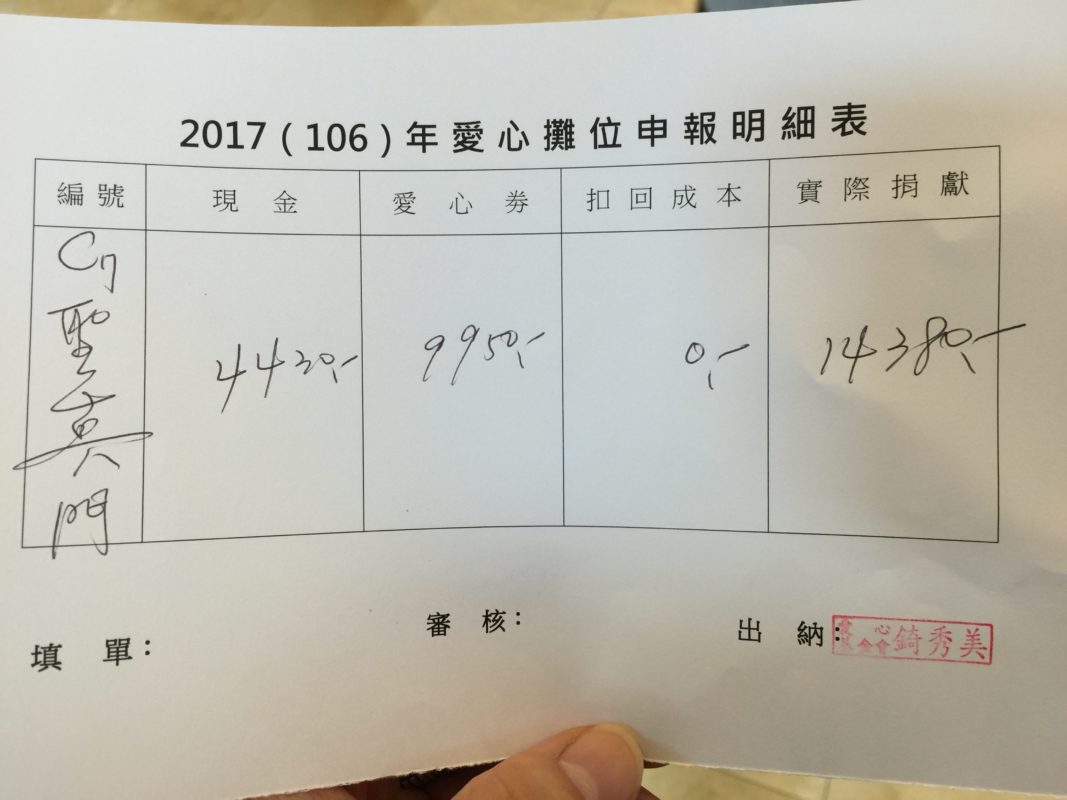 2017（106）年愛心攤位申報明細表
編號 現金 愛心券 扣回成本 實際捐獻
C7
聖真門
4430,- 9950,- 0,- 14380,-
填單： 審核： 出納：
心
金會 錡秀美